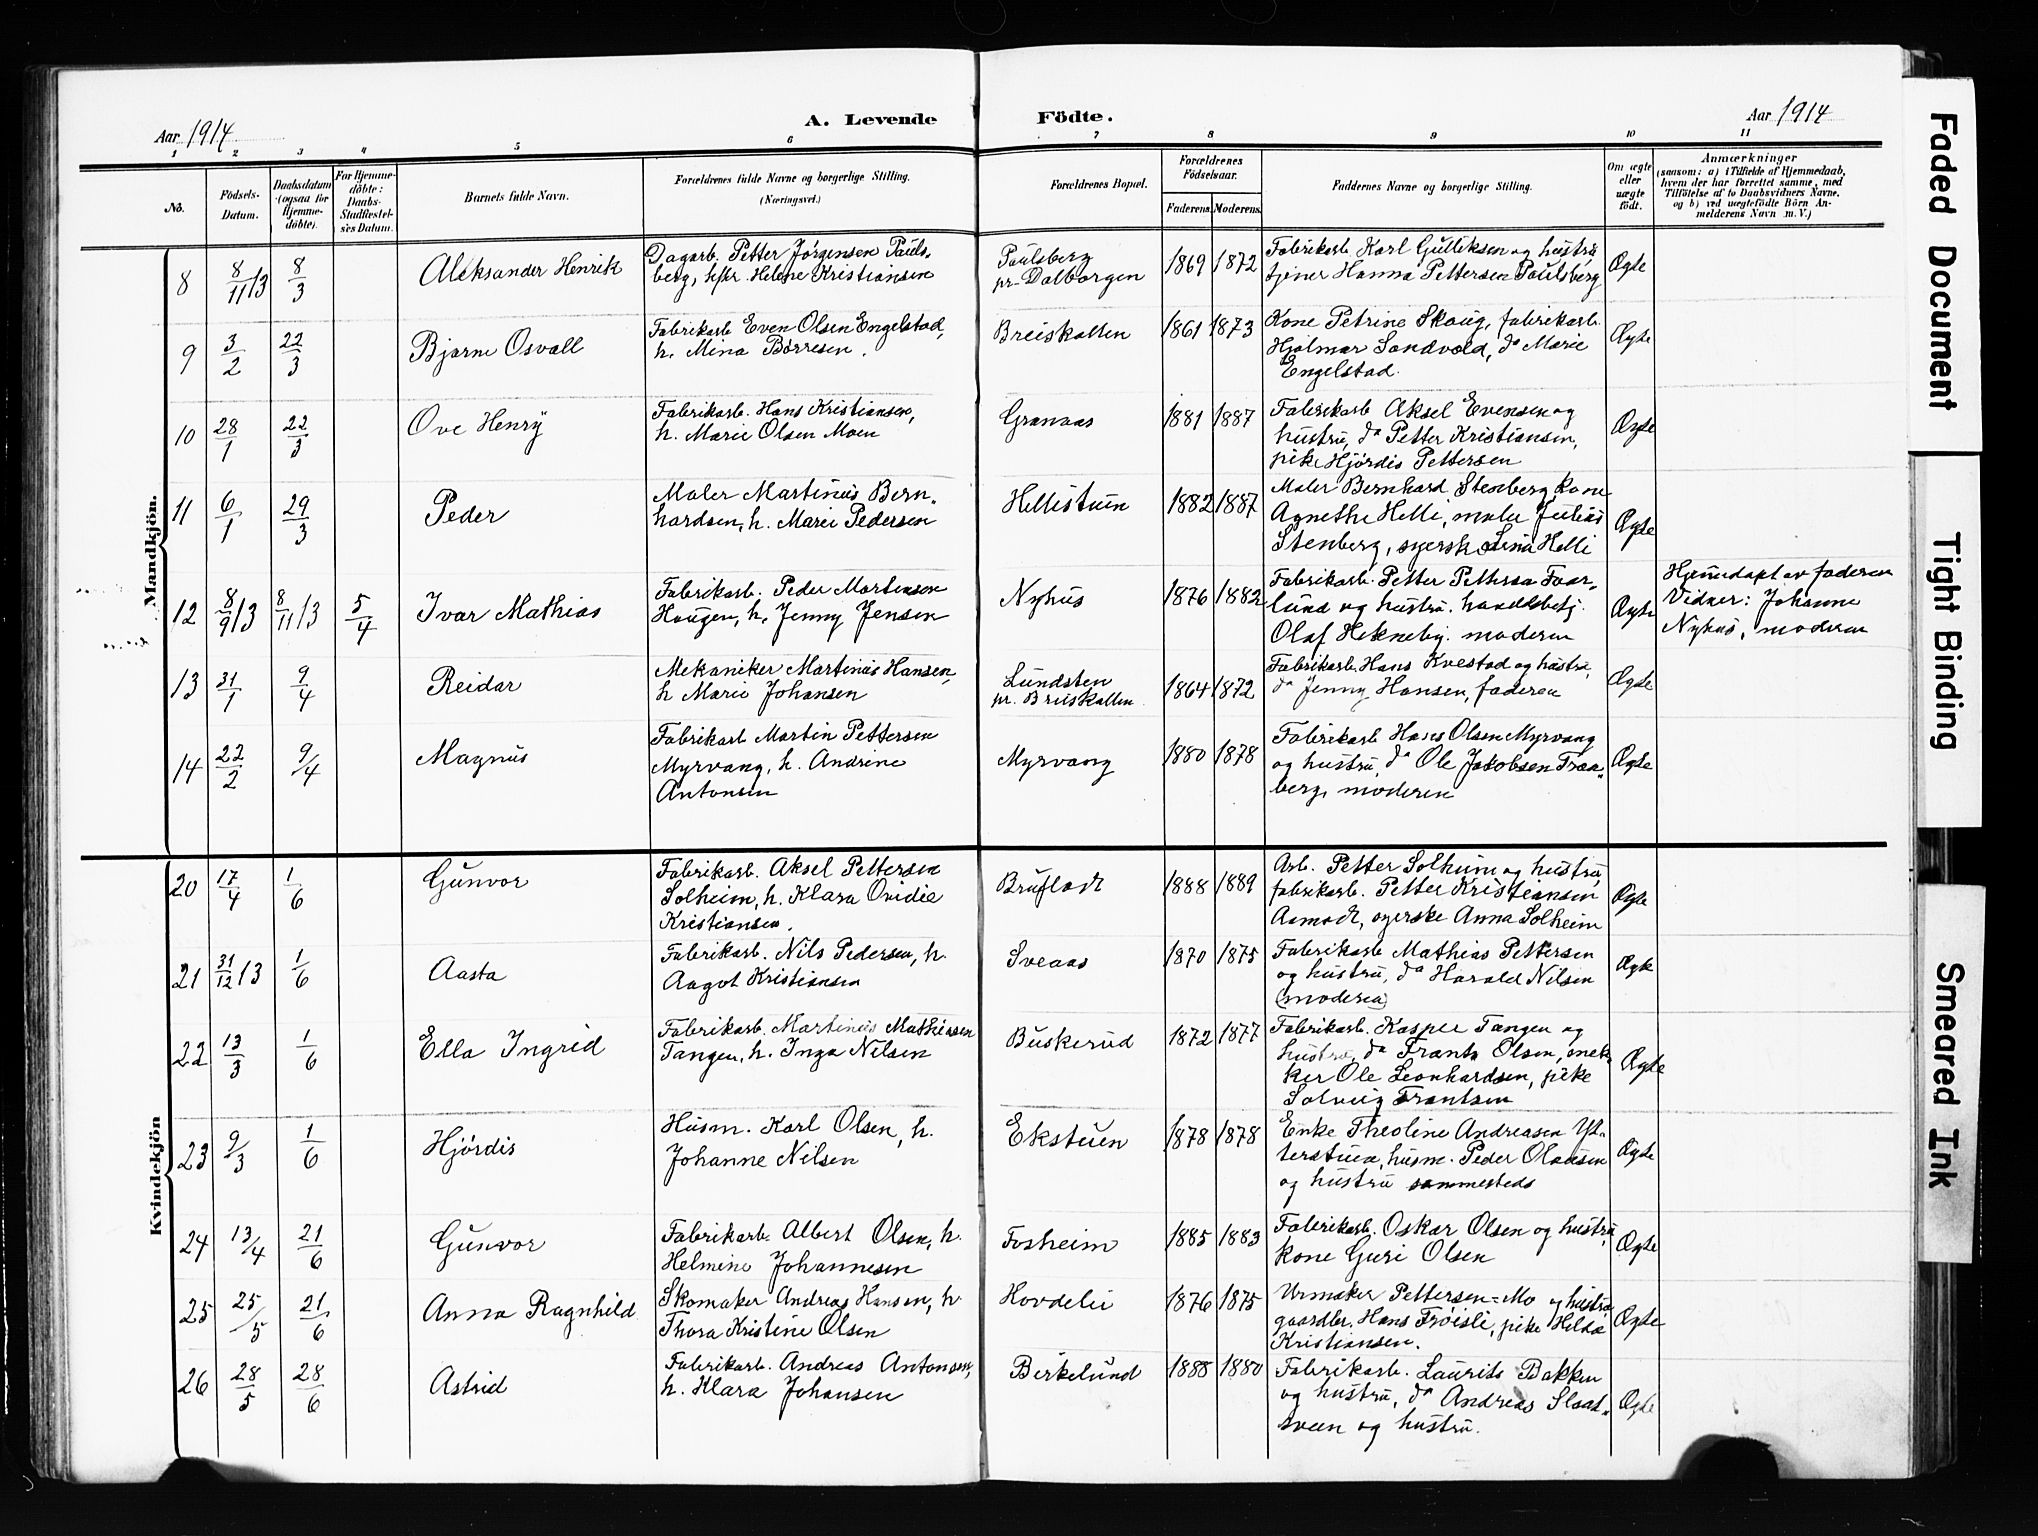 Aar 1914
A. Levende Födte.
Aar 1914
1 2 3 4 5 6 7 8 9 10 11
No.
Födsels-Datum.
Daabsdatum (ogsaa for Hjemme-döbte).
For Hjemme-döbte: Daabs-Stadfæstel-ses Datum.
Barnets fulde Navn.
Forældrenes fulde Navne og borgerlige Stilling. (Næringsvei.)
Forældrenes Bopæl.
Forældrenes Födselsaar.
Faderens. Moderens.
Faddernes Navne og borgerlige Stilling.
Om ægte eller uægte födt.
Anmærkninger
(saasom: a) i Tilfælde af Hjemmedaab, hvem der har forrettet samme, med Tilföielse af to Daabsvidners Navne, og b) ved uægtefödte Börn Anmelderens Navn m. V.)
Mandkjön.
8 8/11 13 8/3 Aleksander Henrik
Dagarb. Petter Jørgensen Pauls-
berg, hstr. Helene Kristiansen
Paulsberg
pr. Dalborgen
1869 1872
Fabrikarb. Karl Gulliksen og hustru,
tjener Hanna Pettersen Paulsberg
Ægte
9 3/2 22/3 Bjarne Osvall
Fabrikarb. Even Olsen Engelstad,
h. Mina Børresen.
Breiskallen 1861 1873
Kone Petrine Skoug, fabrikarb.
Hjalmar Sandvold, do Marie
Engelstad.
Ægte
10 28/1 22/3 Ove Henry
Fabrikarb. Hans Kristiansen,
h. Marie Olsen Moen
Granaas 1881 1887
Fabrikarb. Aksel Evensen og
hustru, do Petter Kristiansen,
pike Hjørdis Pettersen
Ægte
11 6/1 29/3 Peder
Maler Martinius Bern-
hardsen, h. Marie Pedersen
Hellistuen 1882 1887
Maler Bernhard Stenberg, kone
Agnethe Helli, maler Julius
Stenberg, syerske Lina Helli
Ægte
12 8/9 13 8/11 13 5/4 Ivar Mathias
Fabrikarb. Peder Martinsen
Haugen, h. Jenny Jensen
Nyhus 1876 1882
Fabrikarb. Petter Pettersen Faar-
lund og hustru, handelsbetj.
Olaf Hekneby. moderen
Ægte
Hjemmedøpt av faderen
Vidner: Johanne
Nyhus, moderen
13 31/1 9/4 Reidar
Mekaniker Martinius Hansen,
h. Marie Johansen
Lundsten
pr. Breiskallen
1864 1872
Fabrikarb. Hans Kvestad og hustru,
do Jenny Hansen, faderen
Ægte
14 22/2 9/4 Magnus
Fabrikarb. Martin Pettersen
Myrvang, h. Andrine
Antonsen
Myrvang 1880 1878
Fabrikarb. Hans Olsen Myrvang
og hustru, do Ole Jakobsen Fraa-
berg, moderen
Ægte
Kvindekjön
20 17/4 1/6 Gunvor
Fabrikarb. Aksel Pettersen
Solheim, h. Klara Ovidie
Kristiansen.
Bruflodt 1888 1889
Arb. Petter Solheim og hustru,
fabrikarb. Petter Kristiansen
Aamodt, syerske Anna Solheim
Ægte
21 31/12 13 1/6 Aasta
Fabrikarb. Nils Pedersen, h.
Aagot Kristiansen
Sveaas 1870 1875
Fabrikarb. Mathias Pettersen
og hustru, do Harald Nilsen
(moderen)
Ægte
22 13/3 1/6 Ella Ingrid
Fabrikarb. Martinius Mathiesen
Tangen, h. Inga Nilsen
Buskerud 1872 1877
Fabrikarb. Kasper Tangen og
hustru, do Frants Olsen, snek-
ker Ole Leonhardsen, pike
Solveig Frantsen
Ægte
23 9/3 1/6 Hjørdis
Husm. Karl Olsen, h.
Johanne Nilsen
Ekstuen 1878 1878
Enke Theoline Andreasen Yt-
terstuen, husm. Peder Olausen
og hustru sammesteds
Ægte
24 13/4 21/6 Gunvor
Fabrikarb. Albert Olsen, h.
Helmine Johannesen
Fosheim 1885 1883
Fabrikarb. Oskar Olsen og hustru,
kone Guri Olsen
Ægte
25 25/5 21/6 Anna Ragnhild
Skomaker Andreas Hansen, h.
Thora Kristine Olsen
Hovdelie 1876 1875
Urmaker Pettersen=Mo og hustru,
gaardbr. Hans Frøisli, pike Hilda
Kristiansen.
Ægte
26 28/5 28/6 Astrid
Fabrikarb. Andreas Antonsen,
h. Klara Johansen
Birkelund 1888 1880
Fabrikarb. Laurits Bakken
og hustru, do Andreas Slaat-
sveen og hustru.
Ægte
Faded Document
Tight Binding
Smeared Ink